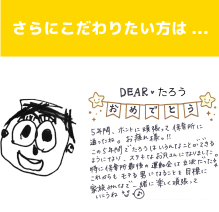 さらにこだわりたい方は...
DEAR♥たろう
おめでとう
5年間、ホントに頑張って保育所に
通ったね。お疲れ様。!!
この5年間でたろうはいろんなことができる
ようになり、ステキなお兄さんになりました。
特に保育所最後の運動会は立派だった。
これからも大きな男になることを目標に
家族みんなで一緒に楽しく頑張って
いこうね